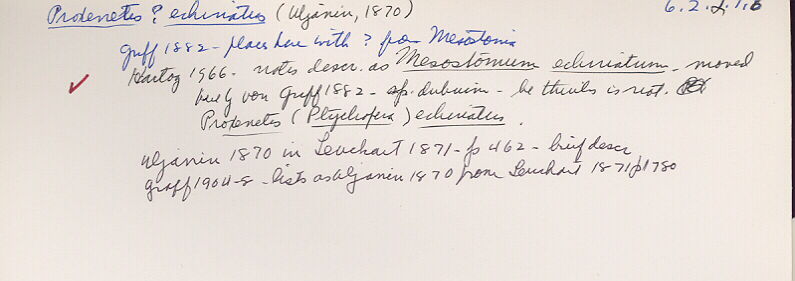 Proxenetes ? echinatus (Uljanin, 1870) 6.2.2.1.6
Graff 1882 - places here with ? from Mesostomia
Hartog 1966 - notes descr. as Mesostomum echinatum - moved
here by von Graff 1882 - sp. dubium - he thinks is not
Proxenetes (Ptychopera) echinatus.
Uljanin 1870 in Leuckart 1871 - p 462 - brief descr
Graff 1904-8 - lists as Uljanin 1870 from Leuckart 1871 p 1780